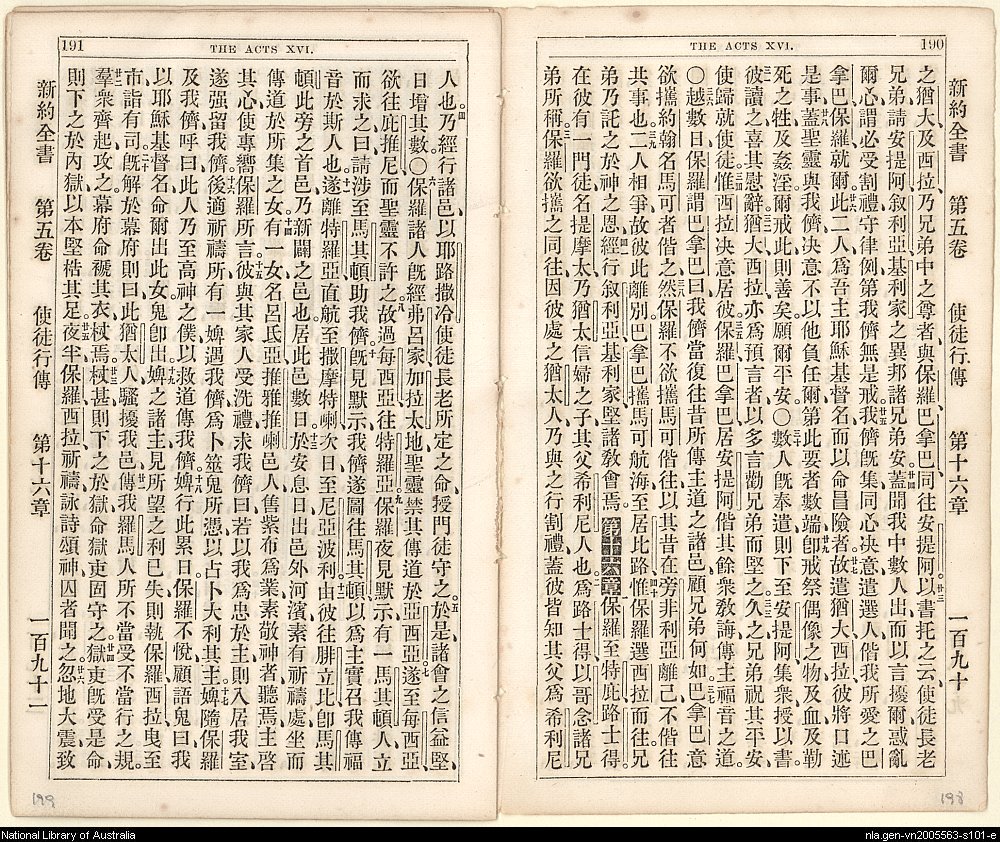 190
THE ACTS XVI.
新約全書 第五卷 使徒行傳 第十六章 一百九十
之猶大及西拉乃兄弟中之尊者與保羅巴拿巴同往安提阿以書托之云使徒長老
兄弟請安提阿叙利亞基利家之異邦諸兄弟安蓋聞我中數人出而以言擾爾惑亂
爾心謂必受割禮守律例第我儕無是戒我儕旣集同心决意遣選人偕我所愛之巴
拿巴保羅就爾此二人爲吾主耶穌基督名而以命昌險者故遣猶大西拉彼將口述
是事蓋聖靈與我儕决意不以他負任爾第此要者數端卽戒祭偶像之物及血及勒
死之牲及姦淫爾戒此則善矣願爾平安○數人旣奉遣則下至安提阿集衆授以書
彼讀之喜其慰辭猶大西拉亦爲預言者以多言勸兄弟而堅之久之兄弟祝其平安
使歸就使徒惟西拉决意居彼保羅巴拿巴居安提阿偕其餘衆敎誨傳主福音之道
○越數日保羅謂巴拿巴曰我儕當復往昔所傳主道之諸邑顧兄弟何如巴拿巴意
欲攜約翰名馬可者偕之然保羅不欲攜馬可偕往以其昔在旁非利亞離己不偕往
共事也二人相爭故彼此離別巴拿巴攜馬可航海至居比路惟保羅選西拉而往兄
弟乃託之於神之恩經行叙利亞基利家堅諸敎會焉第十六章保羅至特庇路士得
在彼有一門徒名提摩太乃猶太信婦之子其父希利尼人也爲路士得以哥念諸兄
弟所稱保羅欲攜之同往因彼處之猶太人乃與之行割禮蓋彼皆知其父爲希利尼
198
191
THE ACTS XVI.
人也乃經行諸邑以耶路撒冷使徒長老所定之命授門徒守之於是諸會之信益堅
日增其數○保羅諸人旣經弗呂家加拉太地聖靈禁其傳道於亞西亞遂至每西亞
欲往庇推尼而聖靈不許之故過每西亞往特羅亞保羅夜見默示有一馬其頓人立
而求之曰請涉至馬其頓助我儕旣見默示我儕遂圖往馬其頓以爲主實召我傳福
音於斯人也遂離特羅亞直航至撒摩特喇次日至尼亞波利由彼往腓立比卽馬其
頓此旁之首邑乃新闢之邑也居此邑數日於安息日出邑外河濱素有祈禱處坐而
傳道於所集之女有一女名呂氏亞推雅推喇邑人售紫布爲業素敬神者聽焉主啓
其心使專嚮保羅所言彼與其家人受洗禮求我儕曰若以我爲忠於主則入居我室
遂强留我儕後適祈禱所有一婢遇我儕爲卜筮鬼所憑以占卜大利其主婢隨保羅
及我儕呼曰此人乃至高神之僕以救道傳我儕婢行此累日保羅不悅顧語鬼曰我
以耶穌基督名命爾出此女鬼卽出婢之諸主見所望之利已失則執保羅西拉曳至
市詣有司旣解於幕府則曰此猶太人騷擾我邑傳我羅馬人所不當受不當行之規
羣衆齊起攻之幕府命褫其衣杖焉杖甚則下之於獄命獄吏固守之獄吏旣受是命
則下之於內獄以木堅梏其足夜半保羅西拉祈禱詠詩頌神囚者聞之忽地大震致
新約全書 第五卷 使徒行傳 第十六章 一百九十一
199
National Library of Australia
nla.gen-vn2005563-s101-e